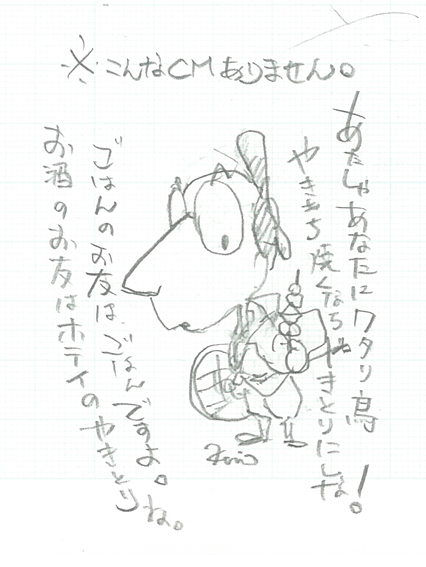 ※こんなCMありません。
あたしゃあなたにワタリ鳥!
やきもち焼くなら やきとりにしな。
ごはんのお友は、ごはんですよ。
お酒のお友はホテイのやきとりね。